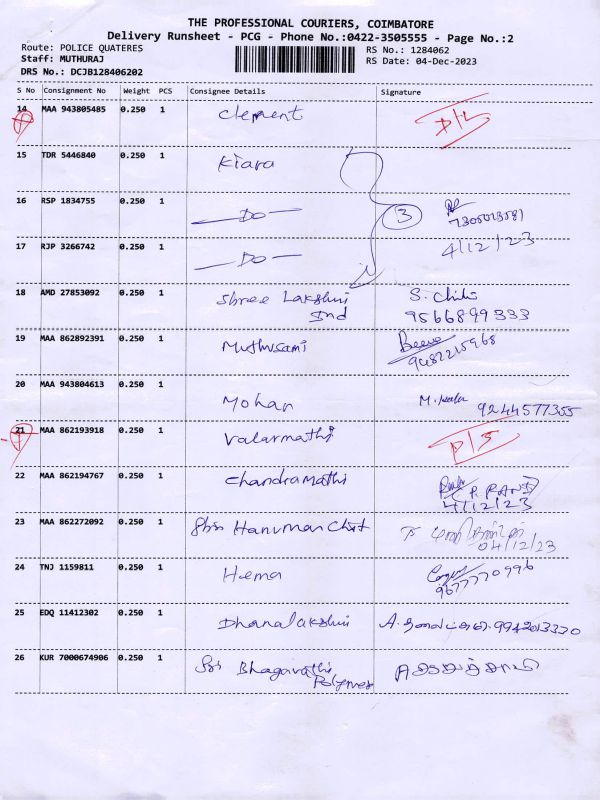 THE PROFESSIONAL COURIERS, COIMBATORE
Delivery Runsheet - PCG - Phone No.:0422-3505555 - Page No.:2
Route: POLICE QUATERES RS No.: 1284062
Staff: MUTHURAJ RS Date: 04-Dec-2023
DRS No.: DCJB128406202
S No Consignment No Weight PCS Consignee Details Signature
14 MAA 943805485 0.250 1 Clement D/L
15 TDR 5446840 0.250 1 Kiara
16 RSP 1834755 0.250 1 — Do — 3
17 RJP 3266742 0.250 1 — Do — 4/12/23
18 AMD 27853092 0.250 1 Shree Lakshmi S.
Ind 9566899333
19 MAA 862892391 0.250 1 Muthusami
20 MAA 943804613 0.250 1 Mohan M. 9244577355
21 MAA 862193918 0.250 1 Valarmathi
22 MAA 862194767 0.250 1 Chandramathi P. RANI
4/12/23
23 MAA 862272092 0.250 1 Shri Hanuman Chit
04/12/23
24 TNJ 1159811 0.250 1 Hema
9677770996
25 EDQ 11412302 0.250 1 Dhanalakshmi 9942013320
26 KUR 7000674906 0.250 1 Sri Bhagavathi
Polymer